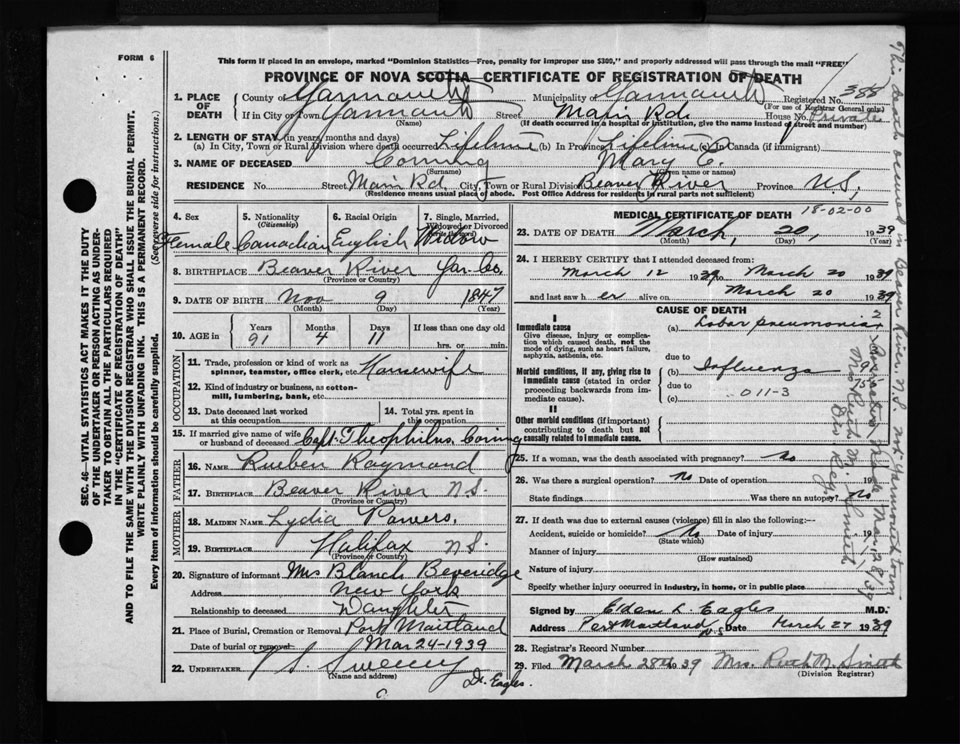 FORM 6
This form if placed in an envelope, marked "Dominion Statistics—Free, penalty for improper use $300," and properly addressed will pass through the mail "FREE"
PROVINCE OF NOVA SCOTIA—CERTIFICATE OF REGISTRATION OF DEATH
1. PLACE OF DEATH
County of Yarmouth Municipality of Yarmouth Registered No. 388
(For use of Registrar General only)
If in City or Town Yarmouth Street Main Rd. House No. Private
(Name) (If death occurred in a hospital or institution, give the name instead of street and number)
2. LENGTH OF STAY (in years, months and days)
(a) In City, Town or Rural Division where death occurred Lifetime (b) In Province Lifetime (c) In Canada (if immigrant)
3. NAME OF DECEASED Corning Mary E.
(Surname) (Given name or names)
RESIDENCE No. Street Main Rd. City, Town or Rural Division Beaver River Province N.S.
(Residence means usual place of abode. Post Office Address for residents in rural parts not sufficient)
4. Sex
Female
5. Nationality
(Citizenship)
Canadian
6. Racial Origin
English
7. Single, Married, Widowed or Divorced
Widow
8. BIRTHPLACE Beaver River Yar. Co.
(Province or Country)
9. DATE OF BIRTH Nov 9 1847
(Month) (Day) (Year)
10. AGE in
Years 91
Months 4
Days 11
If less than one day old
hrs. or min.
OCCUPATION
11. Trade, profession or kind of work as spinner, teamster, office clerk, etc. Homewife
12. Kind of industry or business, as cotton-mill, lumbering, bank, etc.
13. Date deceased last worked at this occupation
14. Total yrs. spent in this occupation
15. If married give name of wife or husband of deceased Capt. Theophilus Corning
FATHER
16. NAME Rueben Raymond
17. BIRTHPLACE Beaver River N.S.
(Province or Country)
MOTHER
18. MAIDEN NAME Lydia Powers.
19. BIRTHPLACE Halifax N.S.
(Province or Country)
20. Signature of informant Mrs Blanch Beveridge
Address New York
Relationship to deceased Daughter
21. Place of Burial, Cremation or Removal Port Maitland
Date of burial or removal Mar 24-1939
22. UNDERTAKER Sweeny
(Name and address)
Dr. Eagles.
MEDICAL CERTIFICATE OF DEATH
18-02-00
23. DATE OF DEATH March, 20, 1939
(Month) (Day) (Year)
24. I HEREBY CERTIFY that I attended deceased from:
March 12 1939 to March 20 1939
and last saw her alive on March 20 1939
CAUSE OF DEATH
I
Immediate cause
Give disease, injury or complication which caused death, not the mode of dying, such as heart failure, asphyxia, asthenia, etc.
(a) Lobar pneumonia
due to
Morbid conditions, if any, giving rise to immediate cause (stated in order proceeding backwards from immediate cause).
(b) Influenza
due to
(c) 011-3
II
Other morbid conditions (if important) contributing to death but not causally related to immediate cause.
25. If a woman, was the death associated with pregnancy? No
26. Was there a surgical operation? No Date of operation 19
State findings Was there an autopsy? No
27. If death was due to external causes (violence) fill in also the following:—
Accident, suicide or homicide? No Date of injury 19
(State which)
Manner of injury
(How sustained)
Nature of injury
Specify whether injury occurred in industry, in home, or in public place
Signed by Eden L. Eagles M.D.
Address Port Maitland N.S Date March 27 1939
28. Registrar's Record Number
29. Filed March 28th 39 Mrs. Ruth M. Smith
(Division Registrar)
SEC. 46—VITAL STATISTICS ACT MAKES IT THE DUTY
OF THE UNDERTAKER OR PERSON ACTING AS UNDERTAKER TO OBTAIN ALL THE PARTICULARS REQUIRED
IN THE "CERTIFICATE OF REGISTRATION OF DEATH"
AND TO FILE THE SAME WITH THE DIVISION REGISTRAR WHO SHALL ISSUE THE BURIAL PERMIT.
WRITE PLAINLY WITH UNFADING INK. THIS IS A PERMANENT RECORD.
Every item of information should be carefully supplied. (See reverse side for instructions.)
This death occurred in Beaver River N.S. not Yarmouth town
Mrs Ruth M. Smith
Div Reg